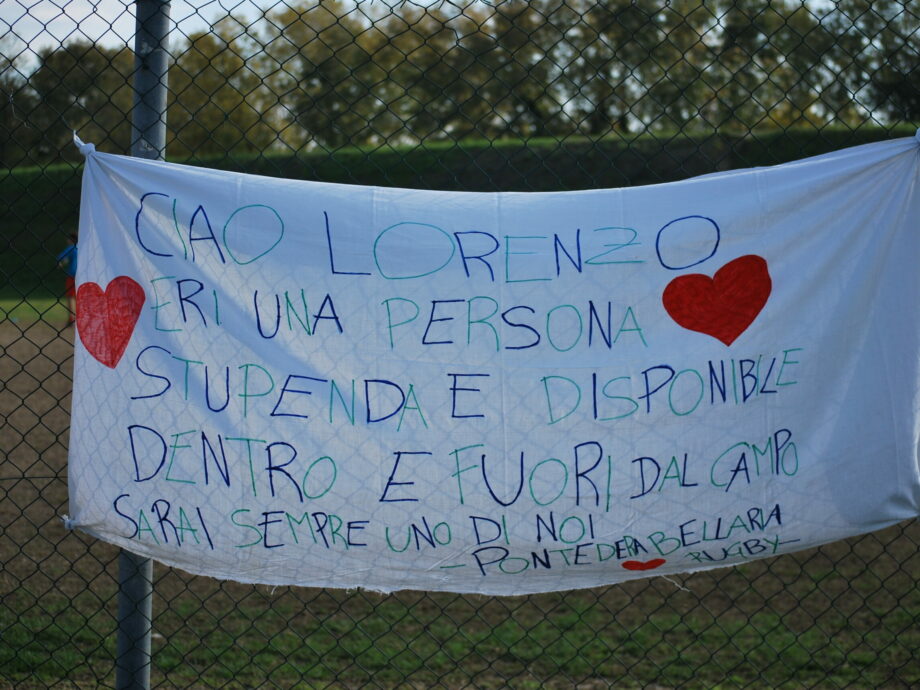 CIAO LORENZO
ERI UNA PERSONA
STUPENDA E DISPONIBLE
DENTRO E FUORI DAL CAMPO
SARAI SEMPRE UNO DI NOI
-PONTEDERA BELLARIA
RUGBY-